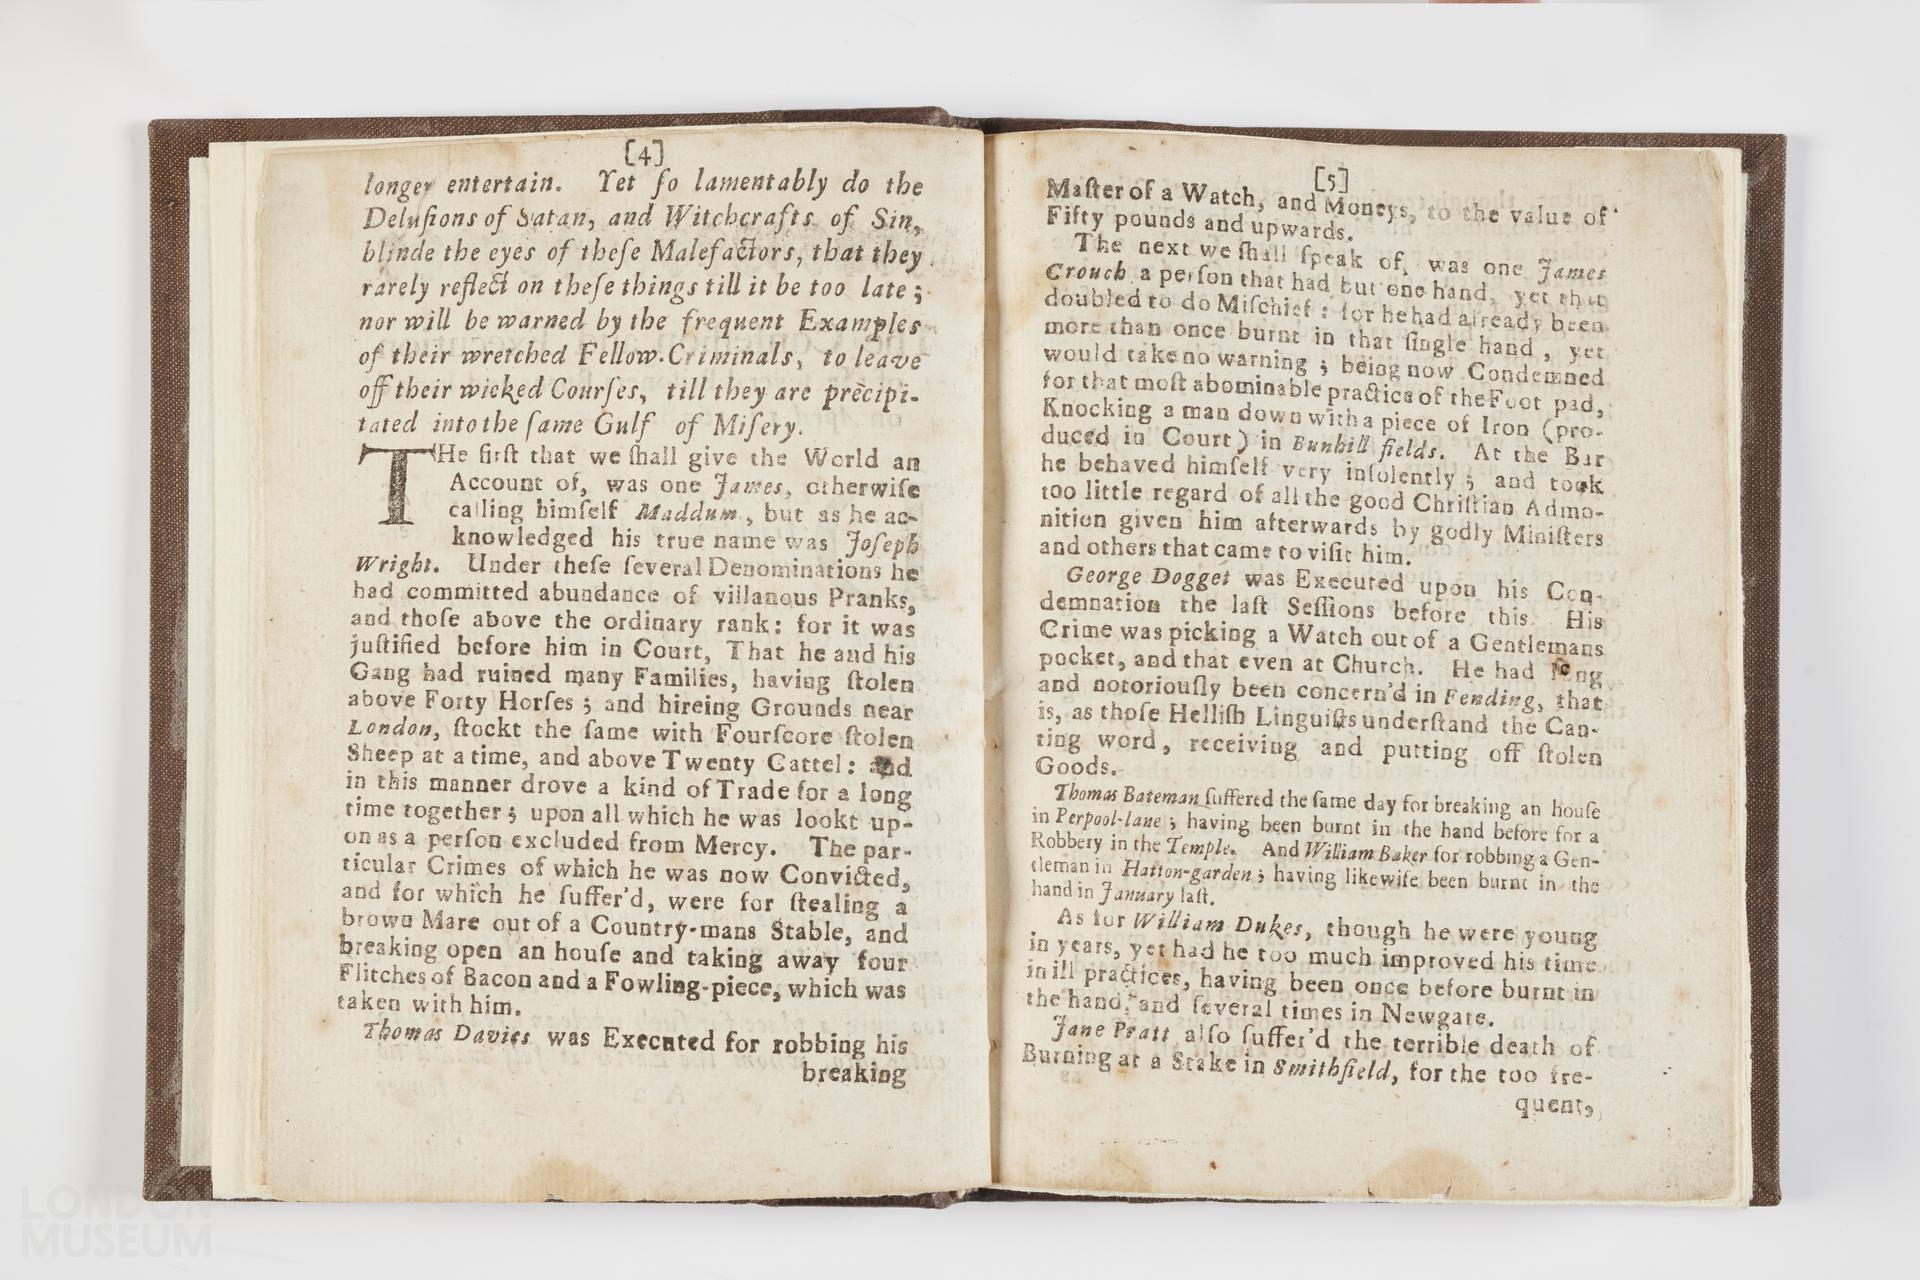 [4]
longer entertain. Yet ſo lamentably do the
Deluſions of Satan, and Witchcrafts of Sin,
blinde the eyes of theſe Malefactors, that they
rarely reflect on theſe things till it be too late;
nor will be warned by the frequent Examples
of their wretched Fellow-Criminals, to leave
off their wicked Courſes, till they are precipi-
tated into the ſame Gulf of Miſery.
THe firſt that we ſhall give the World an
Account of, was one James, otherwiſe
calling himſelf Maddum, but as he ac-
knowledged his true name was Joſeph
Wright. Under theſe ſeveral Denominations he
had committed abundance of villanous Pranks,
and thoſe above the ordinary rank: for it was
juſtified before him in Court, That he and his
Gang had ruined many Families, having ſtolen
above Forty Horſes; and hireing Grounds near
London, ſtockt the ſame with Fourſcore ſtolen
Sheep at a time, and above Twenty Cattel: and
in this manner drove a kind of Trade for a long
time together; upon all which he was lookt up-
on as a perſon excluded from Mercy. The par-
ticular Crimes of which he was now Convicted,
and for which he ſuffer'd, were for ſtealing a
brown Mare out of a Country-mans Stable, and
breaking open an houſe and taking away four
Flitches of Bacon and a Fowling-piece, which was
taken with him.
Thomas Davies was Executed for robbing his
breaking
[5]
Maſter of a Watch, and Moneys, to the value of
Fifty pounds and upwards.
The next we ſhall ſpeak of, was one James
Crouch a perſon that had but one hand, yet that
doubled to do Miſchief: for he had already been
more than once burnt in that ſingle hand, yet
would take no warning; being now Condemned
for that moſt abominable practice of the Foot pad,
Knocking a man down with a piece of Iron (pro-
duced in Court) in Bunhill fields. At the Bar
he behaved himſelf very inſolently; and took
too little regard of all the good Chriſtian Admo-
nition given him afterwards by godly Miniſters
and others that came to viſit him.
George Dogget was Executed upon his Con-
demnation the laſt Seſſions before this. His
Crime was picking a Watch out of a Gentlemans
pocket, and that even at Church. He had long
and notoriouſly been concern'd in Fending, that
is, as thoſe Helliſh Linguiſts underſtand the Can-
ting word, receiving and putting off ſtolen
Goods.
Thomas Bateman ſuffered the ſame day for breaking an houſe
in Perpool-lane; having been burnt in the hand before for a
Robbery in the Temple. And William Baker for robbing a Gen-
tleman in Hatton-garden; having likewiſe been burnt in the
hand in January laſt.
As for William Dukes, though he were young
in years, yet had he too much improved his time
in ill practices, having been once before burnt in
the hand, and ſeveral times in Newgate.
Jane Pratt alſo ſuffer'd the terrible death of
Burning at a Stake in Smithfield, for the too fre-
quent,
LONDON
MUSEUM